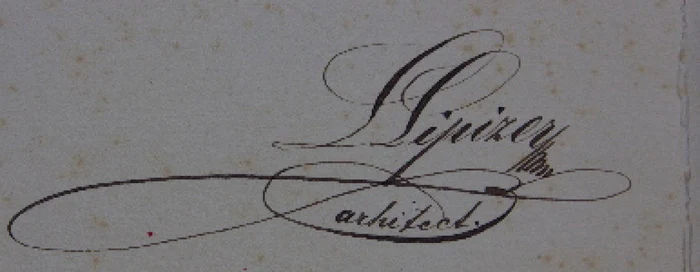 L Lipizer
arhitect.